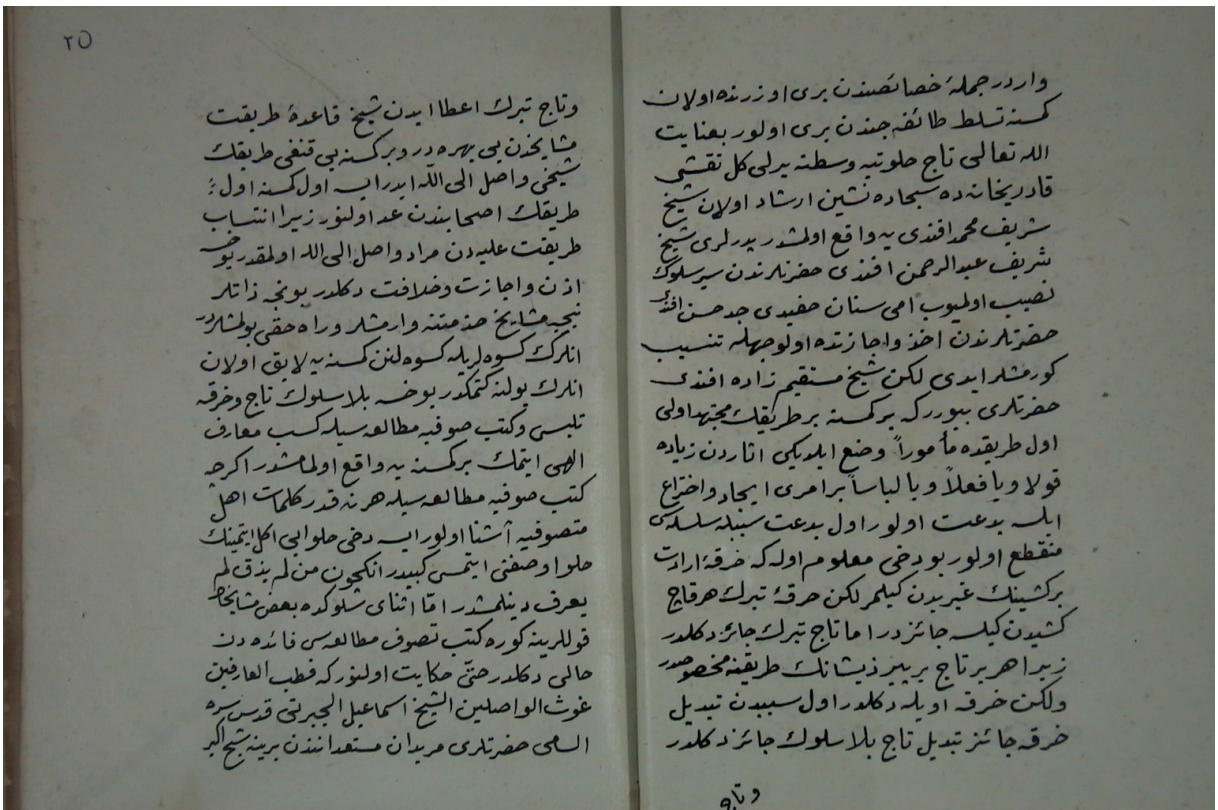 واردر جملۀ خصائصندن بری اوزرنده اولان
کمسنه تسلط طائفه جندن بری اولور بعنایت
الله تعالی تاج خلوتیه وسطنه یرلی کل نقشی
قادریخانه ده سجاده نشین ارشاد اولان شیخ
شریف محمد افندی یه واقع اولمشدر پدرلری شیخ
شریف عبدالرحمن افندی حضرتلرندن سیر سلوک
نصیب اولمیوب امی سنان حفیدی جد حسن افندی
حضرتلرندن اخذ واجازتده اولوجهله تنسیب
کورمشلر ایدی لکن شیخ مستقیم زاده افندی
حضرتلری بیوررکه برکمسنه بر طریقک مجتهد اولی
اول طریقده مأموراً وضع ایلدیکی اثاردن زیاده
قولا ویا فعلاً ویا لباساً بر امری ایجاد واختراع
ایلسه بدعت اولور اول بدعت سببیله سلسله سی
منقطع اولور بو دخی معلوم اوله که خرقۀ ارادت
برکشینک غیریدن کیلمز لکن خرقۀ تبرک هر قاچ
کشیدن کیلسه جائزدر اما تاج تبرک جائز دکلدر
زیرا هر بر تاج بر پیر ذیشانک طریقنه مخصوصدر
ولکن خرقه اویله دکلدر اول سببدن تبدیل
خرقه جائز تبدیل تاج بلا سلوک جائز دکلدر
وتاج
٢٥
وتاج تبرک اعطا ایدن شیخ قاعدۀ طریقت
مشایخدن بی بهره در وبرکسنه یی قنغی طریقک
شیخی واصل الی الله ایدرایسه اول کمسنه اول
طریقک اصحابندن عد اولنور زیرا انتساب
طریقت علیه دن مراد واصل الی الله اولمقدر یوخسه
اذن واجازت وخلافت دکلدر بونجه ذاتلر
نیجه مشایخ خدمتنه وارمشلر وراه حقی بولمشلردر
انلرک کسوه لریله کسوه لنن کمسنه یه لایق اولان
انلرک یولنه کتمکدر یوخسه بلا سلوک تاج وخرقه
تلبس وکتب صوفیه مطالعه سیله کسب معارف
الهی ایتمک برکسنه یه واقع اولمامشدر اکرچه
کتب صوفیه مطالعه سیله هر نه قدر کلمات اهل
متصوفیه آشنا اولورایسه دخی حلوایی اکل ایتمینک
حلوا وصفنی ایتمسی کبیدر انکچون من لم یذق لم
یعرف دینلمشدر امّا اثنای سلوکده بعض مشایخک
قوللرینه کوره کتب تصوف مطالعه سی فائده دن
خالی دکلدر حتّی حکایت اولنورکه قطب العارفین
غوث الواصلین الشیخ اسماعیل الجبرتی قدس سره
السامی حضرتلری مریدان مستعداننذن برینه شیخ اکبر